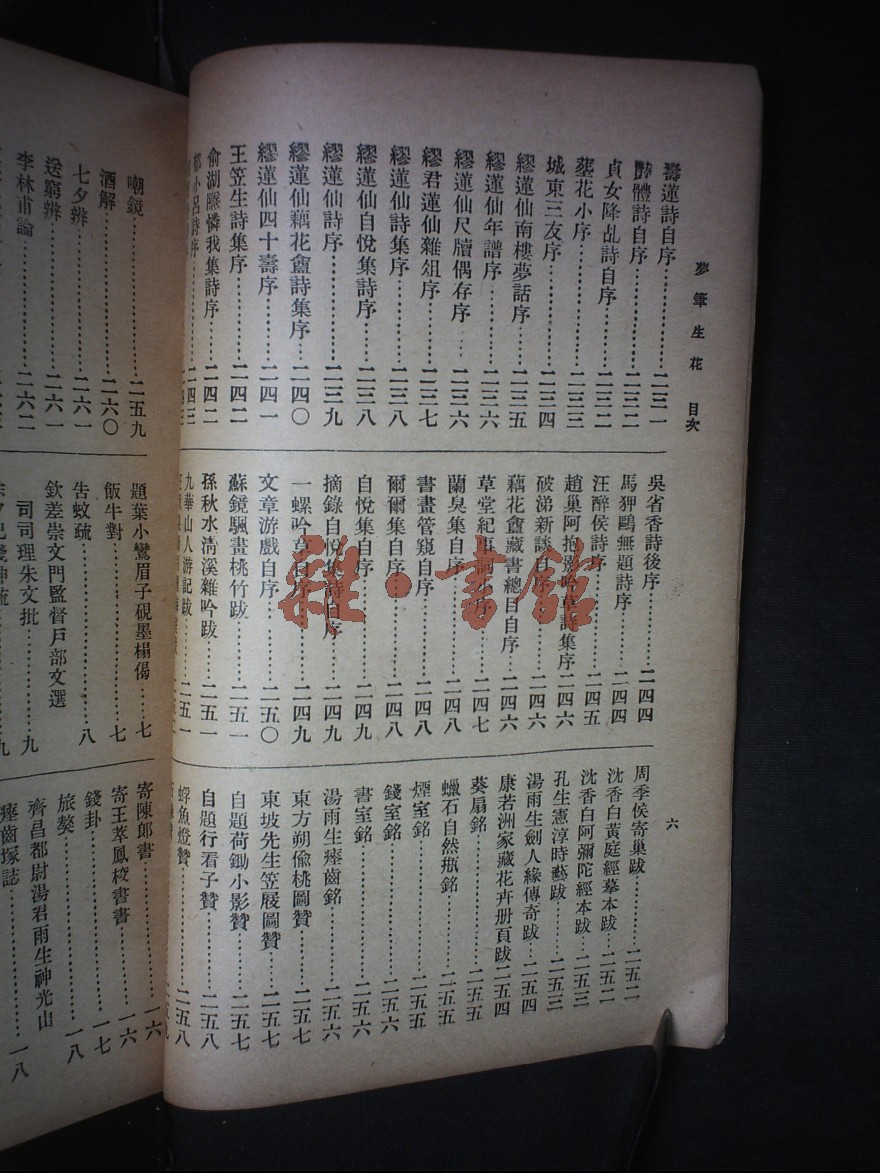 夢筆生花 目次
六
壽蓮詩自序……二三一
豔體詩自序……二三二
貞女降乩詩自序……二三二
塟花小序……二三三
城東三友序……二三四
繆蓮仙南樓夢話序……二三五
繆蓮仙年譜序……二三六
繆蓮仙尺牘偶存序……二三六
繆君蓮仙雜俎序……二三七
繆蓮仙詩集序……二三八
繆蓮仙自悅集詩序……二三八
繆蓮仙詩序……二三九
繆蓮仙藕花盦詩集序……二四〇
繆蓮仙四十壽序……二四一
王笠生詩集序……二四二
俞湖隱憐我集詩序……二四二
吳省香詩後序……二四四
馬狎鷗無題詩序……二四四
汪醉侯詩序……二四五
趙巢阿抱影吟草詩集序……二四六
破涕新談自序……二四六
藕花盦藏書總目自序……二四六
草堂紀事詞小序……二四七
蘭臭集自序……二四八
書畫管窺自序……二四八
爾爾集自序……二四八
自悅集自序……二四九
摘錄自悅集詩自序……二四九
一螺吟草自序……二四九
文章游戲自序……二五〇
蘇鏡颿畫桃竹跋……二五一
孫秋水淸溪雜吟跋……二五一
九華山人游記跋……二五一
周季侯寄巢跋……二五二
沈香白黃庭經摹本跋……二五二
沈香白阿彌陀經本跋……二五三
孔生憲淳時藝跋……二五三
湯雨生劍人緣傳奇跋……二五四
康若洲家藏花卉册頁跋二五四
葵扇銘……二五五
蠟石自然瓶銘……二五五
煙室銘……二五五
錢室銘……二五六
書室銘……二五六
湯雨生瘞齒銘……二五六
東方朔偸桃圖贊……二五七
東坡先生笠屐圖贊……二五七
自題荷鋤小影贊……二五七
自題行看子贊……二五八
蜉魚燈贊……二五八
嘲鏡……二五九
酒解……二六〇
七夕辨……二六一
送窮辨……二六一
李林甫論……二六二
題葉小鸞眉子硯墨榻傷……七
飯牛對……七
告蚊疏……八
欽差崇文門監督戶部文選
司司理朱文批……九
寄陳郎書……一六
寄王萃鳳校書書……一六
錢卦……一七
旅獒……一八
齊昌都尉湯君雨生神光山
瘞齒塚誌……一八
雜·書館